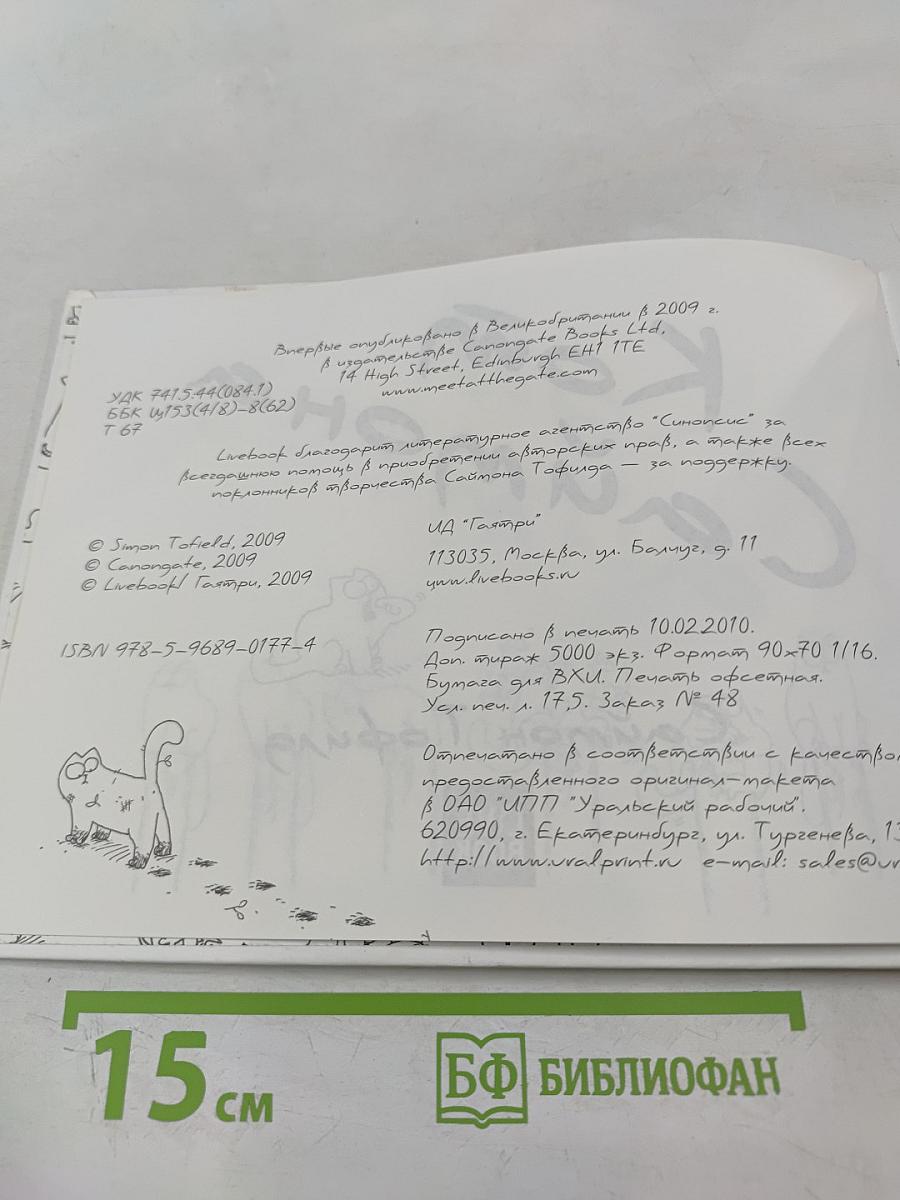 Впервые опубликовано в Великобритании в 2009 г.
в издательстве Canongate Books Ltd,
14 High Street, Edinburgh EH1 1TE
www.meetatthegate.com
УДК 741.5.44(084.1)
ББК Щ153(4/8)-8(62)
Т 67
Livebook благодарит литературное агентство "Синопсис" за
всегдашнюю помощь в приобретении авторских прав, а также всех
поклонников творчества Саймона Тофилда — за поддержку.
© Simon Tofield, 2009
© Canongate, 2009
© Livebook/ Гаятри, 2009
ISBN 978-5-9689-0177-4
ИД "Гаятри"
113035, Москва, ул. Балчуг, д. 11
www.livebooks.ru
Подписано в печать 10.02.2010.
Доп. тираж 5000 экз. Формат 90x70 1/16.
Бумага для ВХИ. Печать офсетная.
Усл. печ. л. 17,5. Заказ № 48
Отпечатано в соответствии с качество
предоставленного оригинал-макета
в ОАО "ИПП "Уральский рабочий".
620990, г. Екатеринбург, ул. Тургенева, 13
http://www.uralprint.ru e-mail: sales@ur
15 см
БФ БИБЛИОФАН